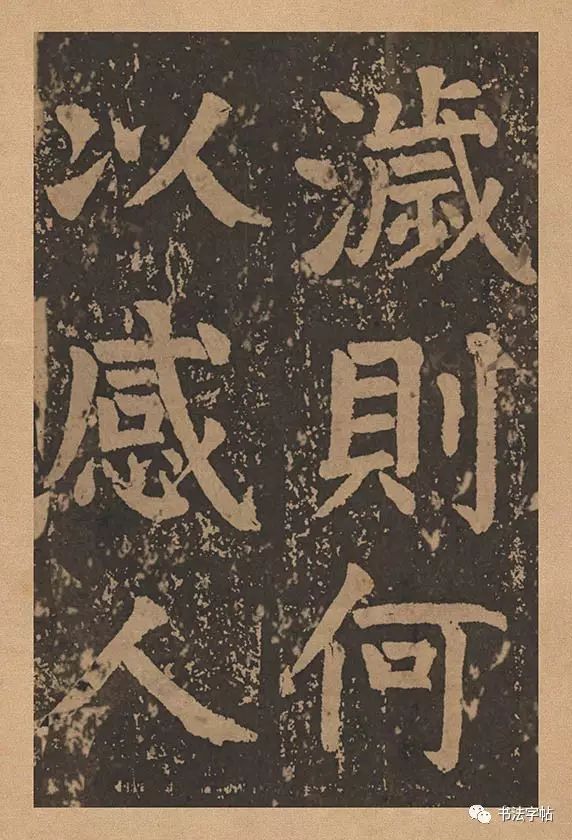 濊則何
以感人
书法字帖